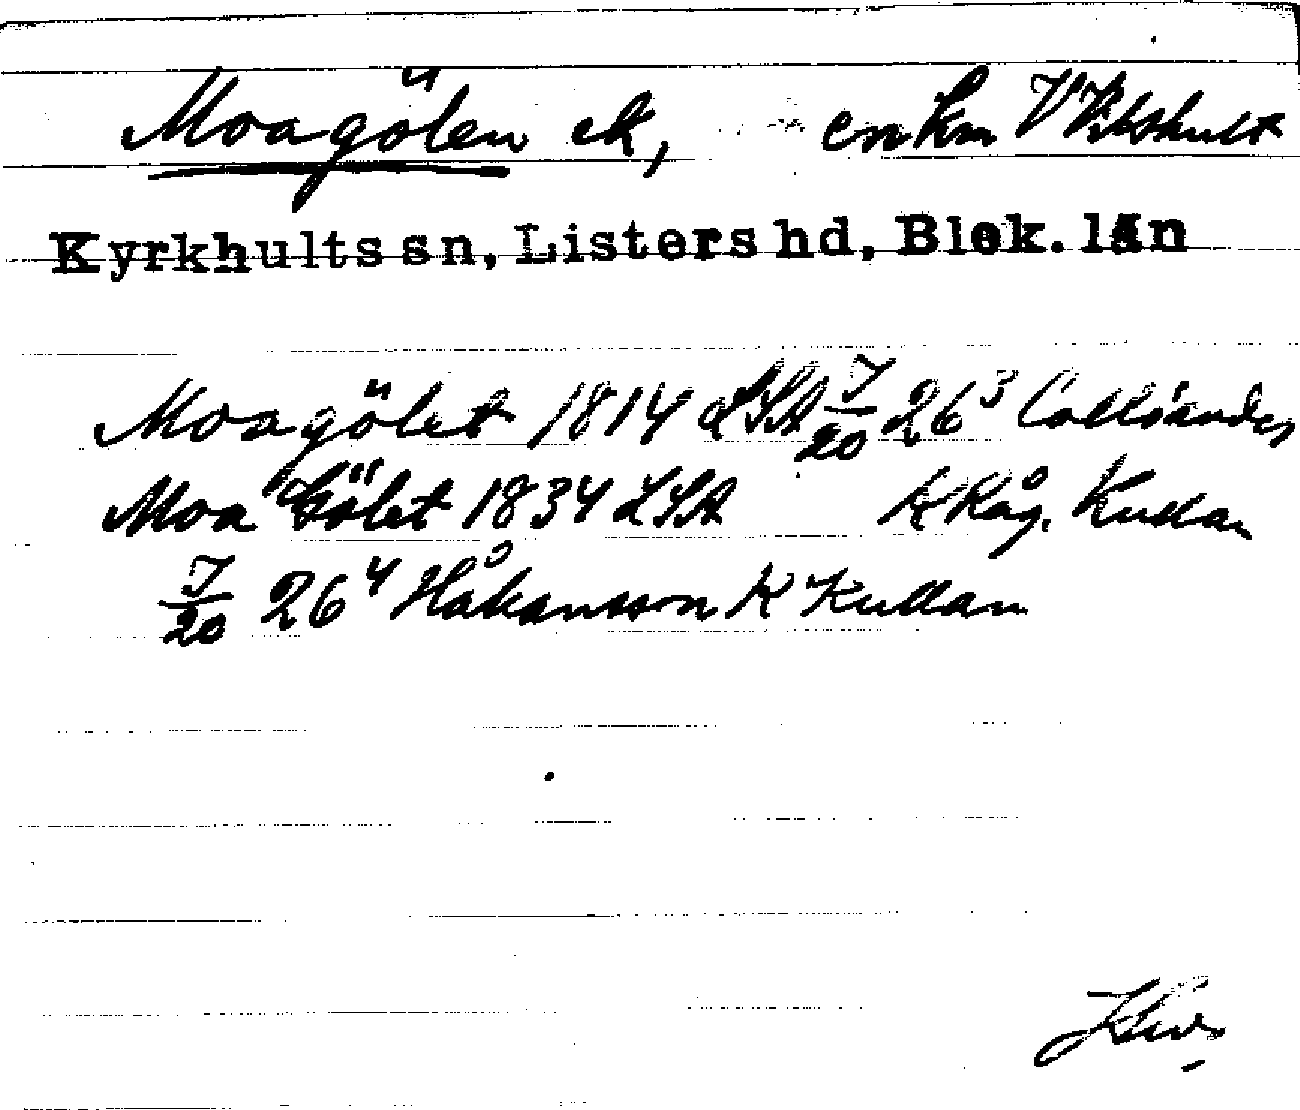 Moagölen ek, enkm V Vilshult
Kyrkhults sn, Listers hd, Blek. län
Moagölet 1814 LSA J/20 26³ Calliander
Moa Gölet 1834 LSA K Råg. Kullan
J/20 26⁴ Håkansson K Kullan